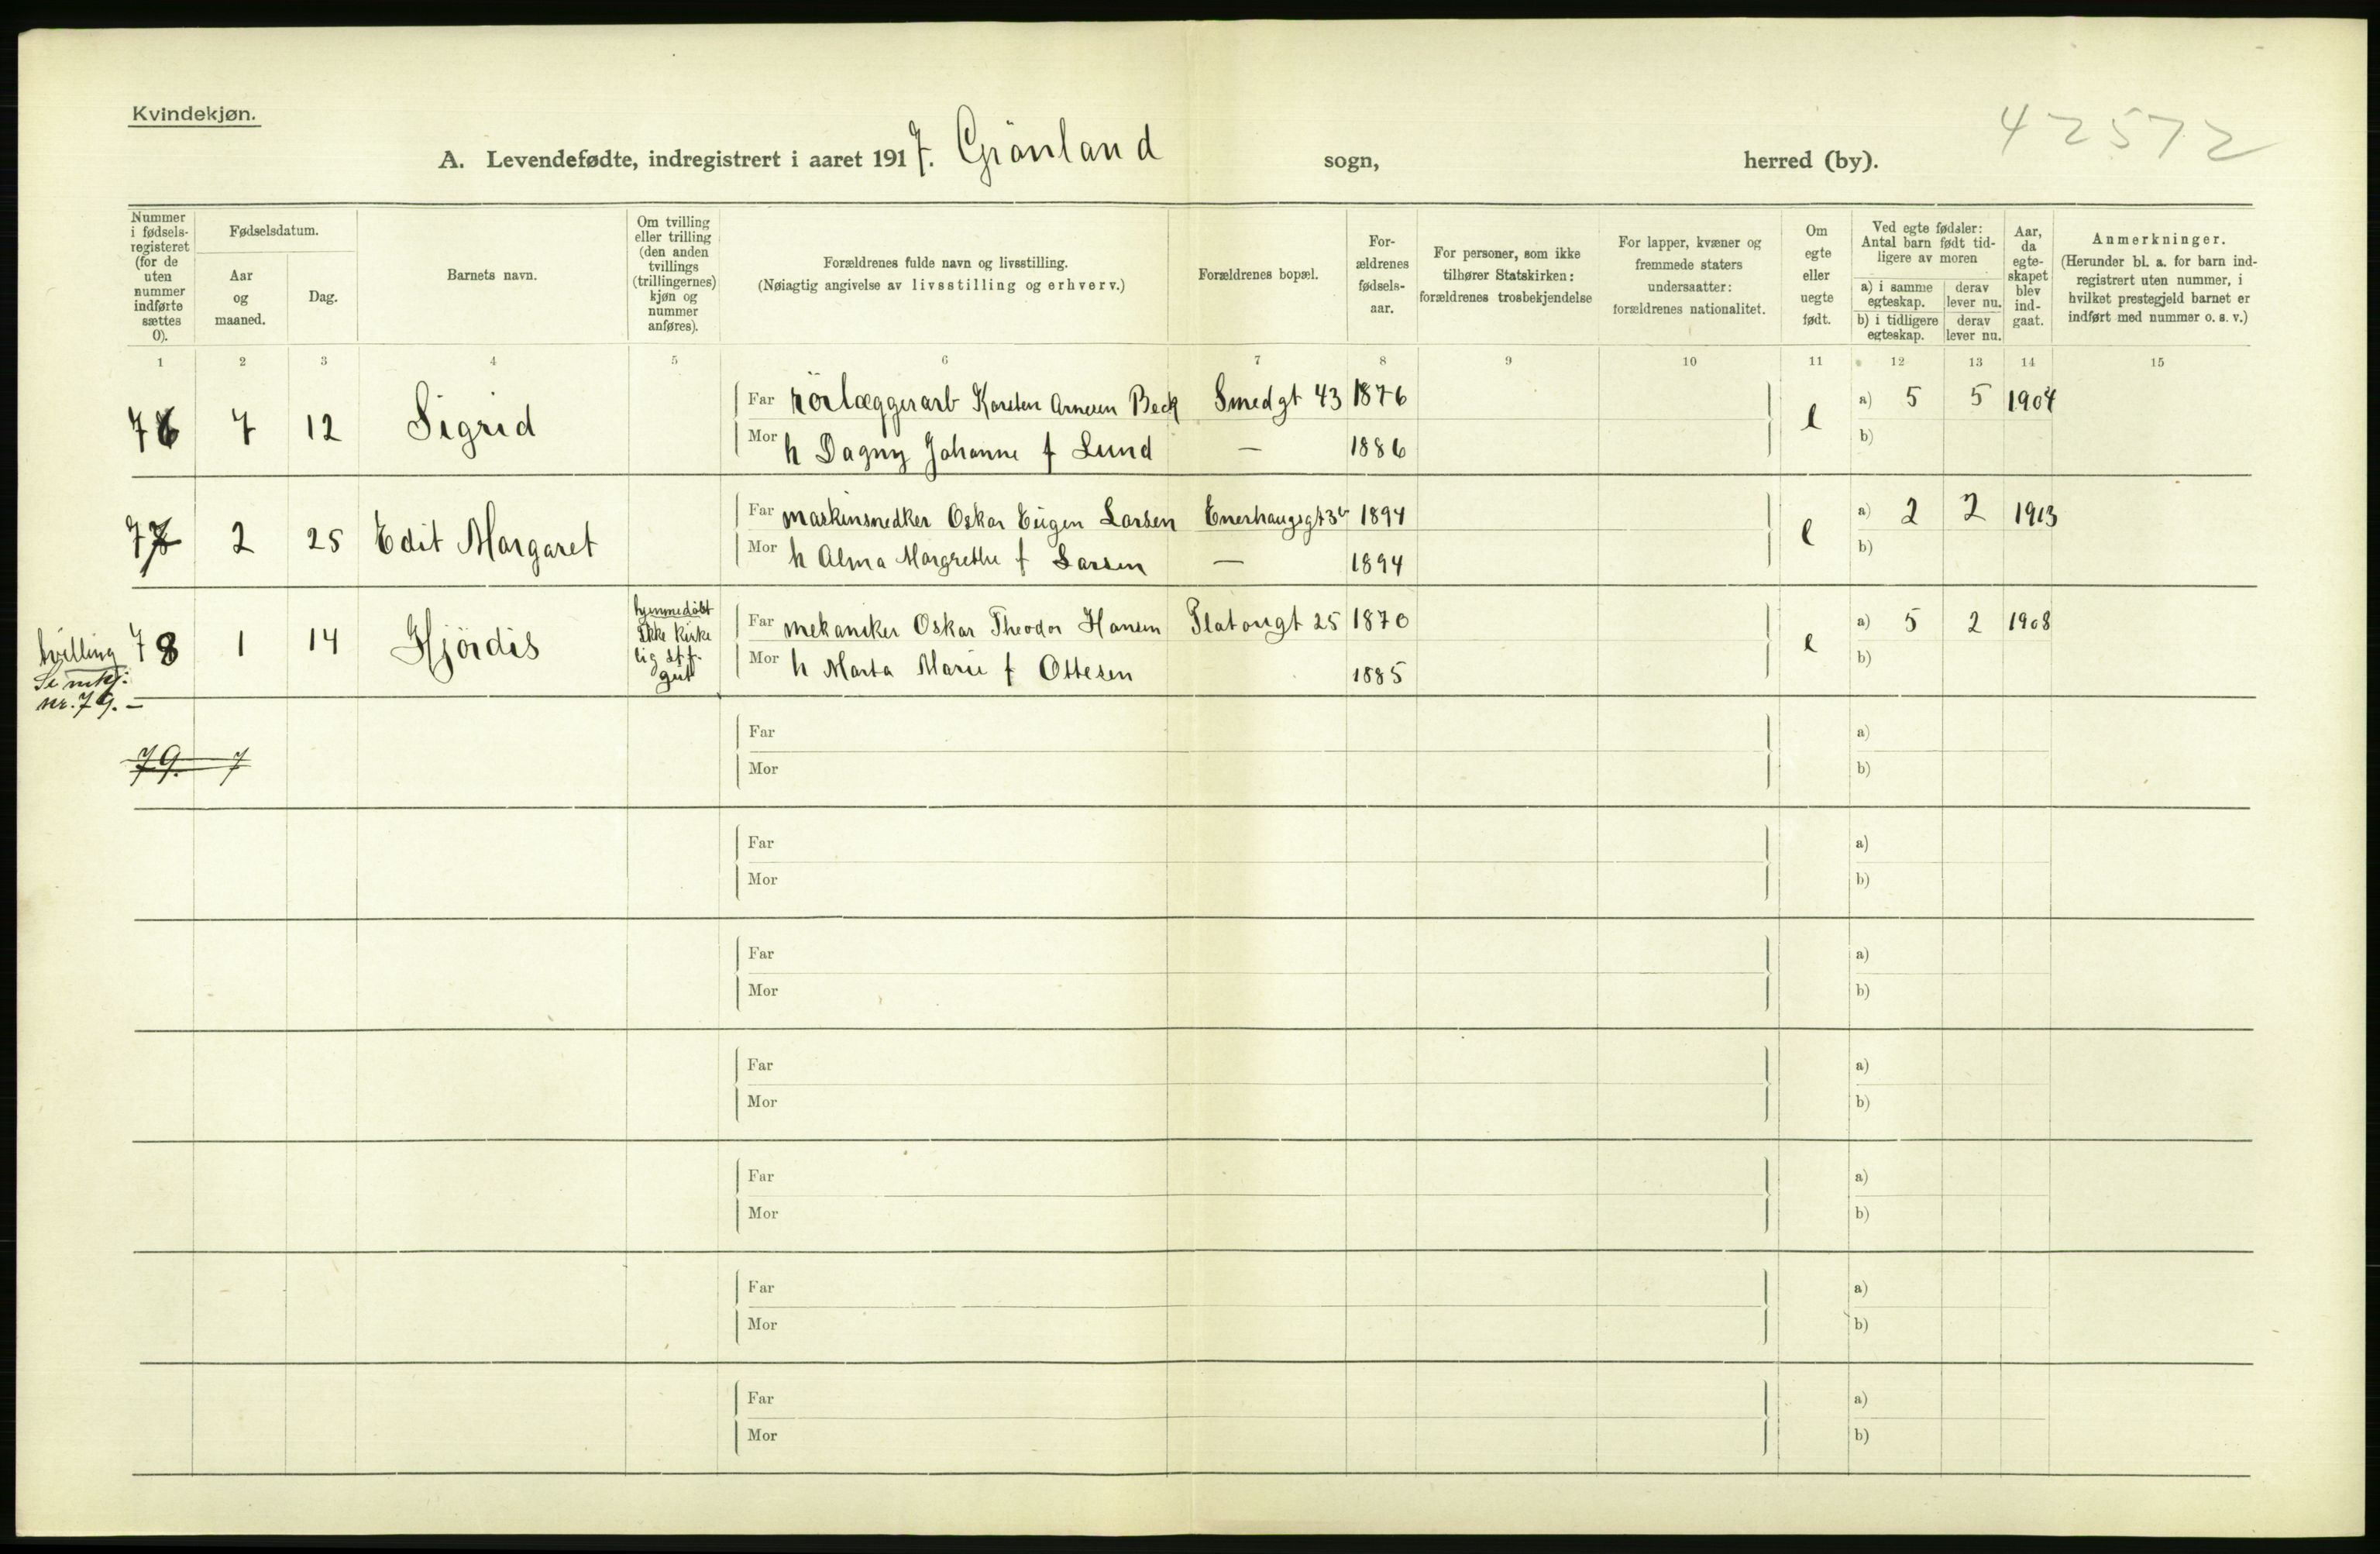 Kvindekjøn.
42572
A. Levendefødte, indregistrert i aaret 1917. Grönland sogn, herred (by).
Nummer i fødsels-registeret (for de uten nummer indførte sættes 0).
Fødselsdatum.
Aar og maaned.
Dag.
Barnets navn.
Om tvilling eller trilling (den anden tvillings (trillingernes) kjøn og nummer anføres).
Forældrenes fulde navn og livsstilling.
(Nøiagtig angivelse av livsstilling og erhverv.)
Forældrenes bopæl.
For-ældrenes fødsels-aar.
For personer, som ikke tilhører Statskirken: forældrenes trosbekjendelse
For lapper, kvæner og fremmede staters undersaatter: forældrenes nationalitet.
Om egte eller uegte født.
Ved egte fødsler: Antal barn født tid-ligere av moren
a) i samme egteskap.
derav lever nu.
b) i tidligere egteskap.
derav lever nu.
Aar, da egte-skapet blev ind-gaat.
Anmerkninger.
(Herunder bl. a. for barn ind-registrert uten nummer, i hvilket prestegjeld barnet er indført med nummer o. s. v.)
1 2 3 4 5 6 7 8 9 10 11 12 13 14 15
76 7 12 Sigrid Far rörlæggerarb Karsten Arnesen Beck Smedgt 43 1876 e a) 5 5 1904
Mor h Dagny Johanne f Lund — 1886 b)
77 2 25 Edit Margaret Far maskinsnedker Oskar Eugen Larsen Enerhaugsgt 1894 e a) 2 2 1913
Mor h Alma Margrethe f Larsen — 1894 b)
tvilling 78 1 14 Hjördis hjemmedöbt ikke kirke lig st.f. gut Far mekaniker Oskar Theodor Hansen Platougt 25 1870 e a) 5 2 1908
Se mkj: nr. 79. — Mor h Marta Marie f Ottesen 1885 b)
79. 7 Far a)
Mor b)
Far a)
Mor b)
Far a)
Mor b)
Far a)
Mor b)
Far a)
Mor b)
Far a)
Mor b)
Far a)
Mor b)